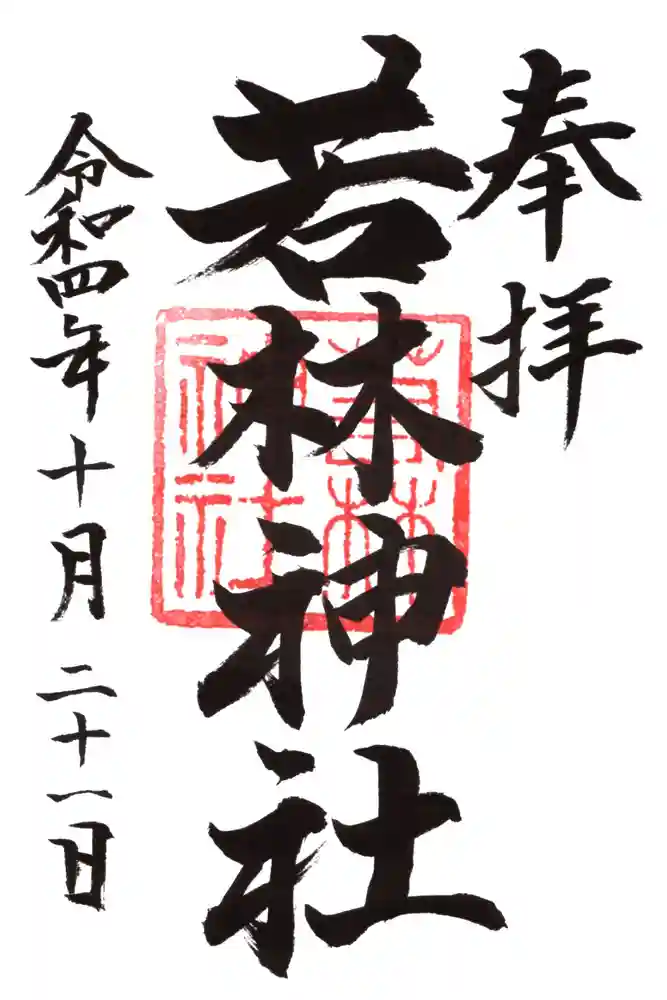 奉拝
若林神社
令和四年十月二十一日
若林神社